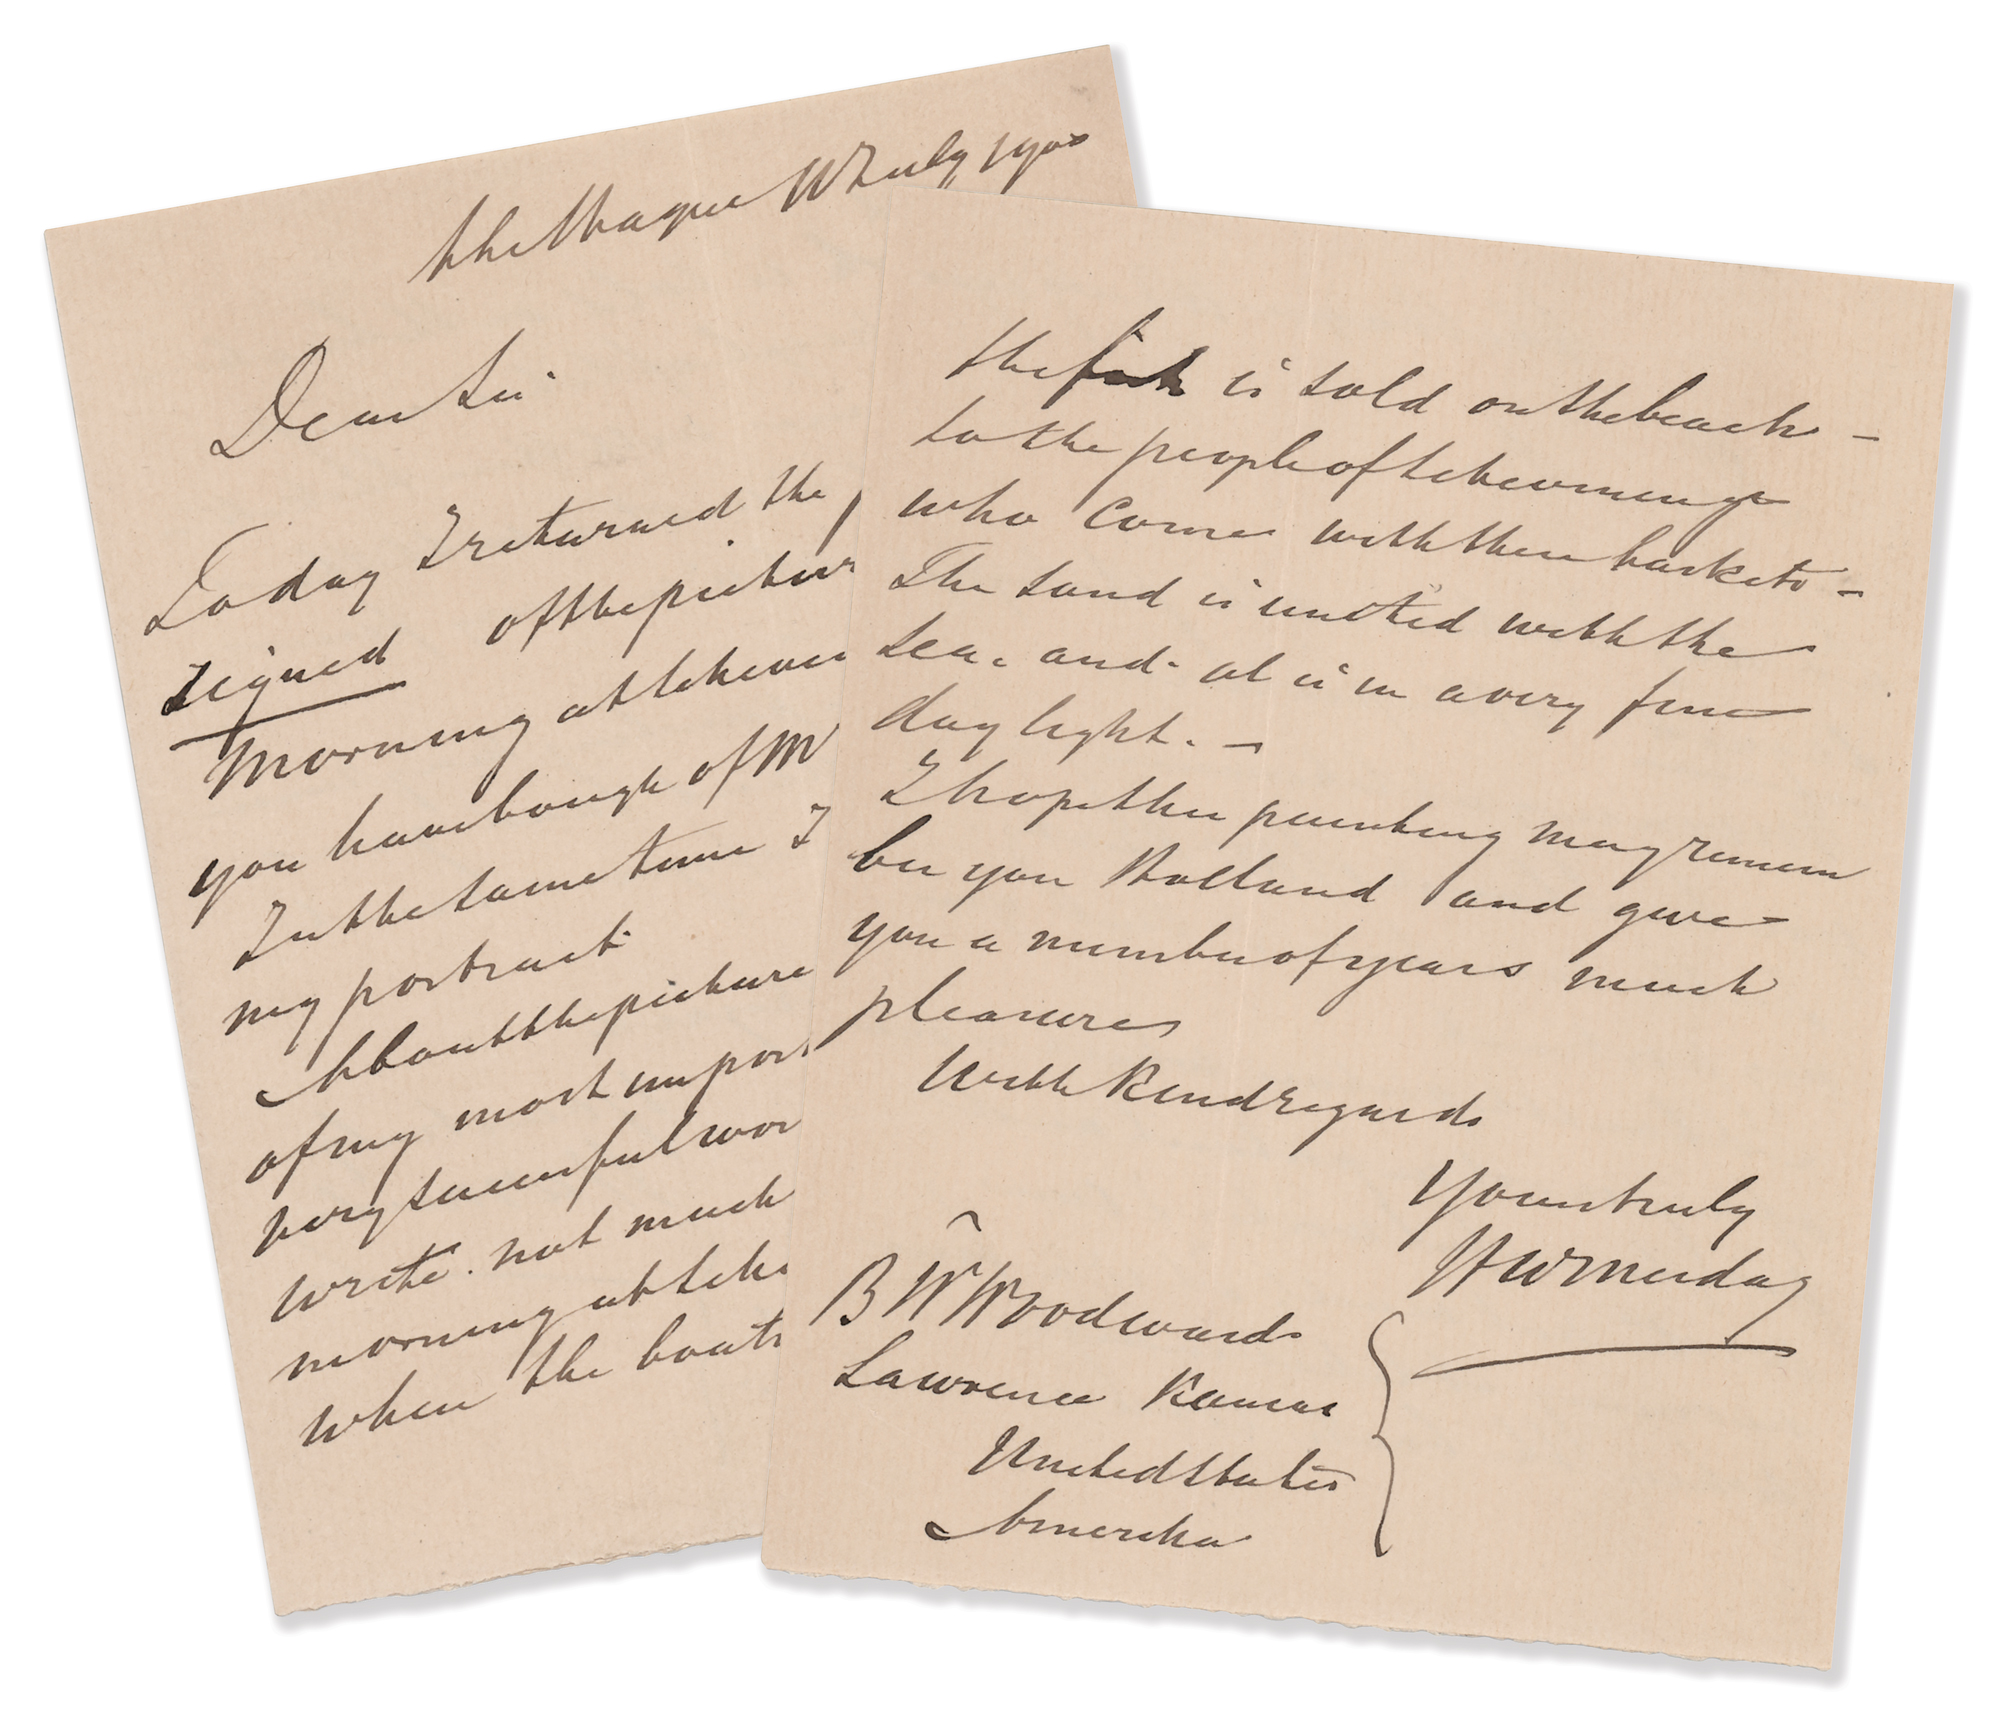 the Hague July 1900
Dear Sir
Today I returned the
signed of the pictur
Morning at Scheven
you have bough of M
In the same time I
my portrait
About the picture
of my most impor
very succesful wor
write. not much
morning at Sche
when the boats
the fish is sold on the beach -
to the people of Scheveningen
who comes with their baskets -
The sand is united with the
sea. and al is in a very fine
day light. -
I hope the painting may remem
ber you Holland and give
you a number of years much
pleasures
With Kind regards
Yours truly
HWMesdag
B W Woodward
Lawrence Kansas
United States
Amerika